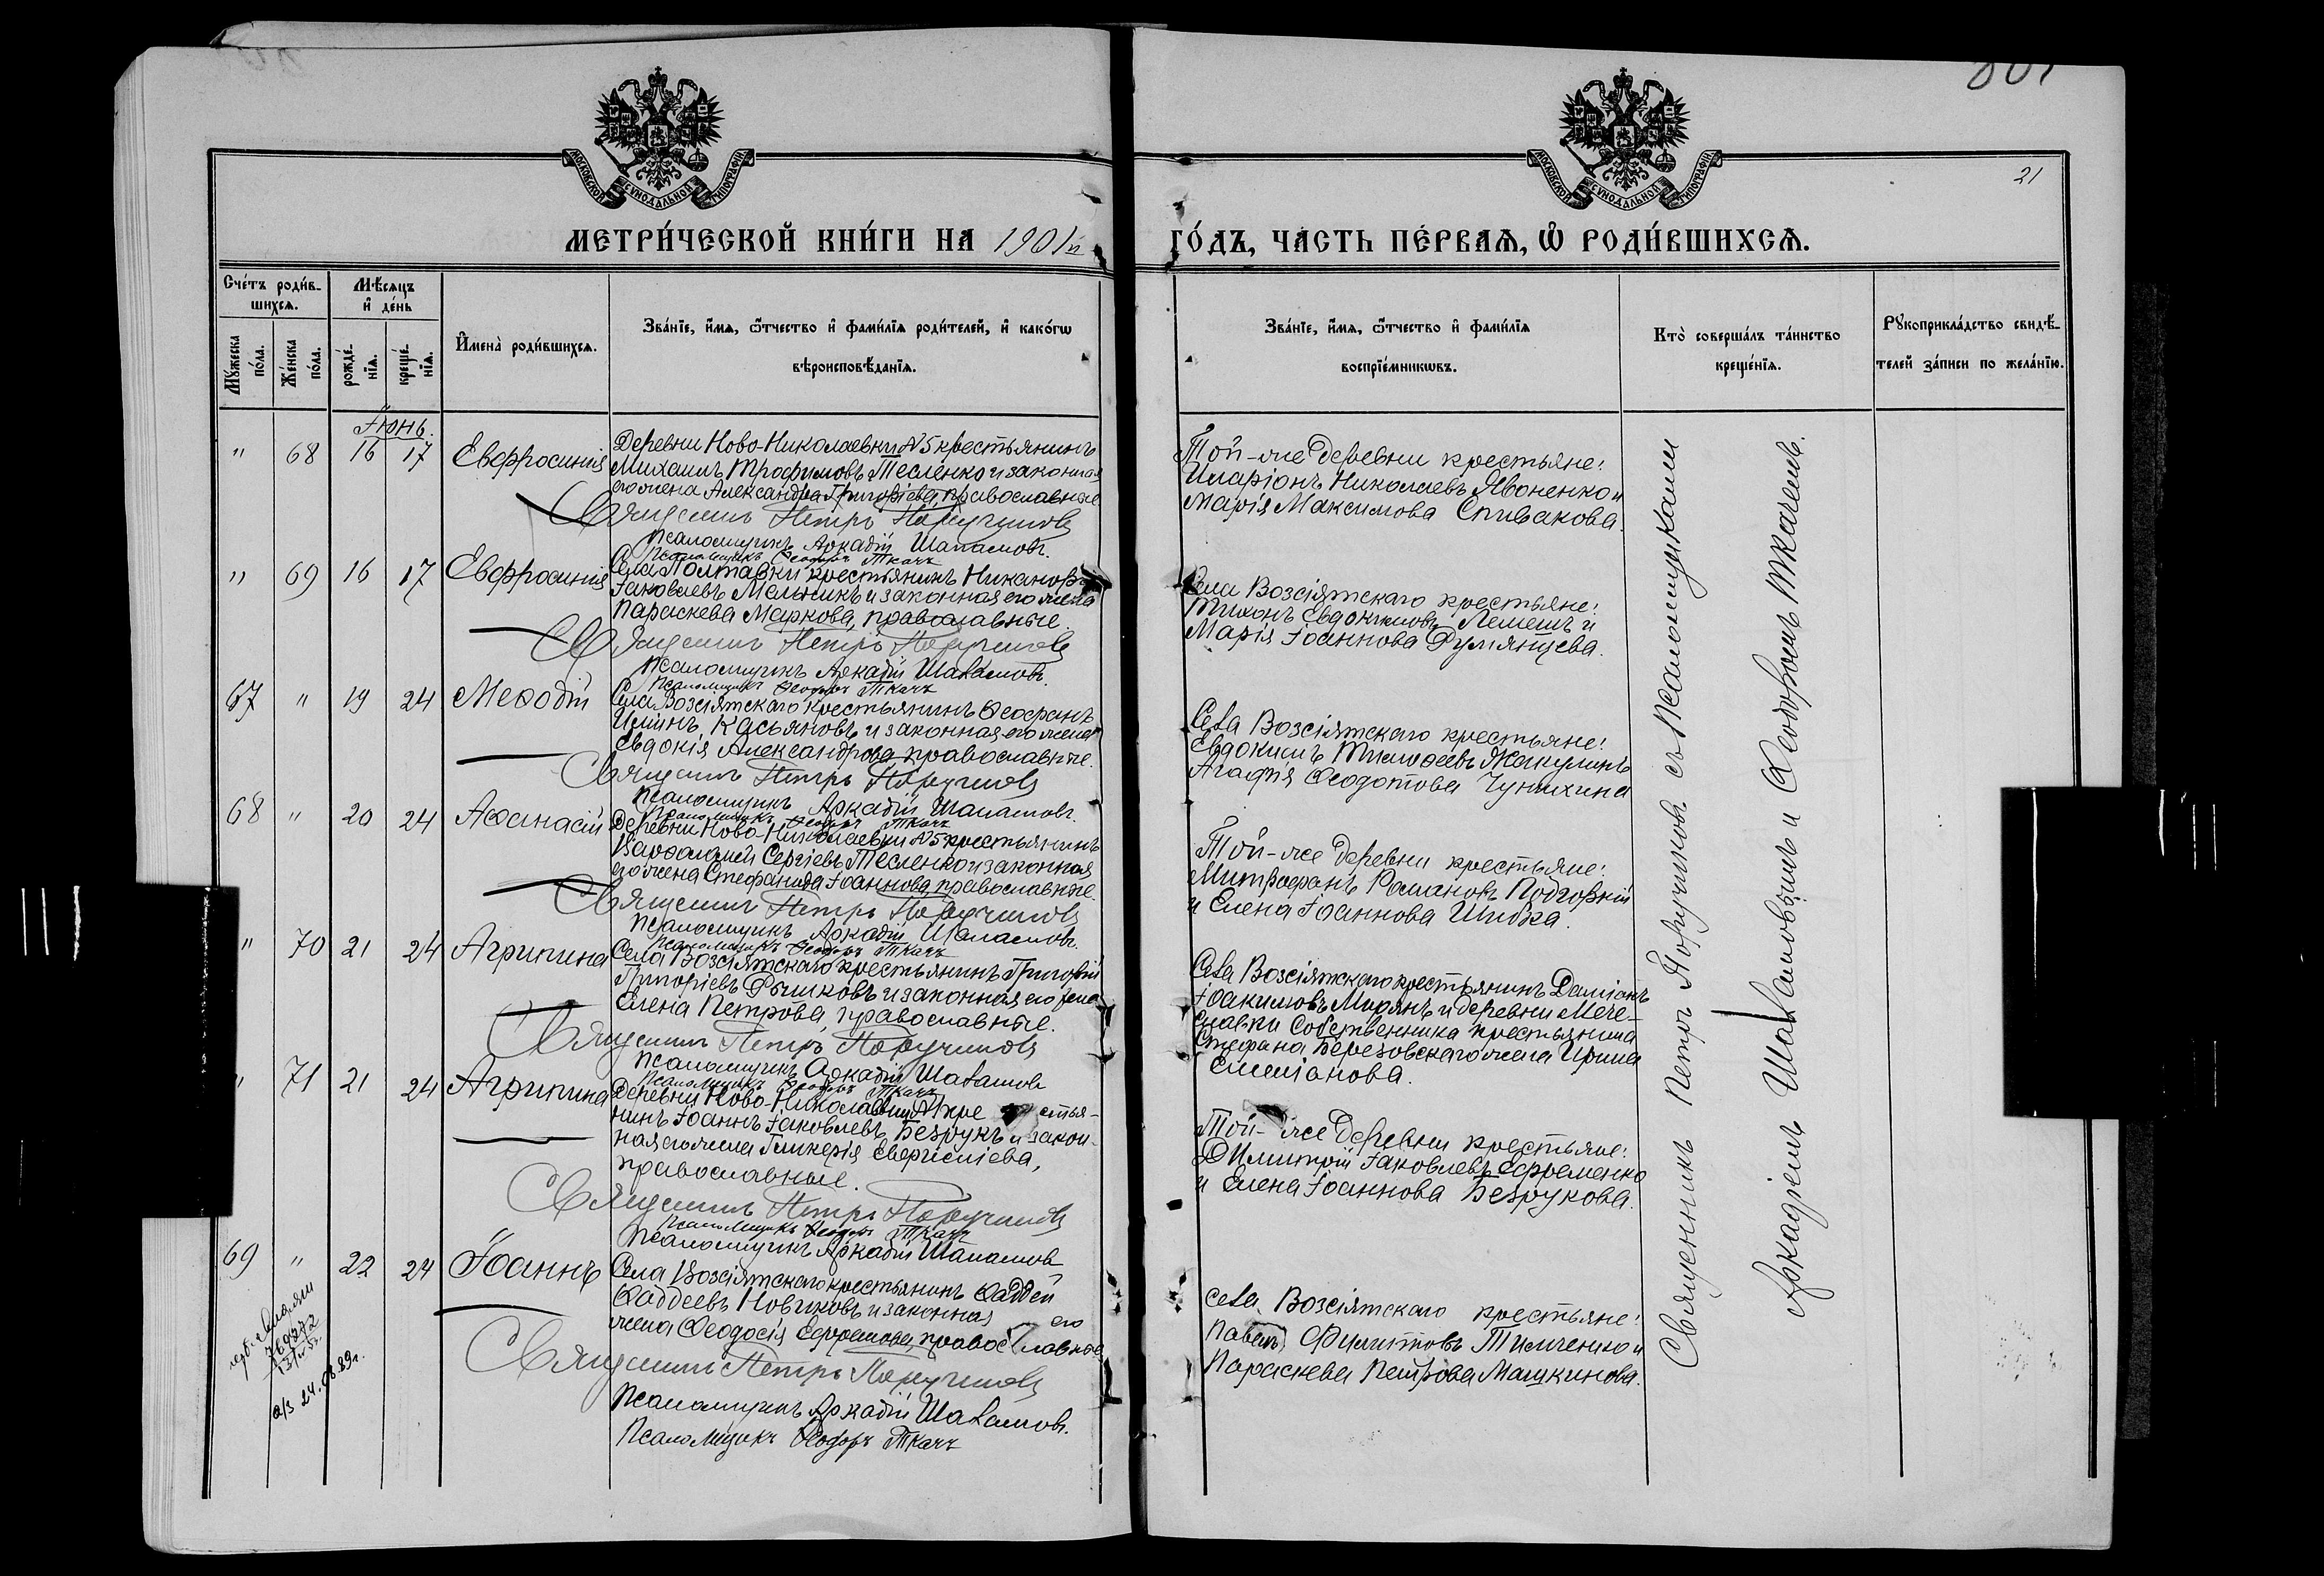 21
МОСКОВСКОЙ СѴНОДАЛЬНОЙ ТИПОГРАФІИ
МОСКОВСКОЙ СѴНОДАЛЬНОЙ ТИПОГРАФІИ
МЕТРИ́ЧЕСКОЙ КНИ́ГИ НА 1901й ГО́ДЪ, ЧА́СТЬ ПЕ́РВАѦ, Ѡ҆ РОДИ́ВШИХСѦ.
Сче́тъ роди́в-
шихсѧ.
Мꙋ́жеска по́ла.
Же́нска по́ла.
Мѣ́сѧцъ и҆ де́нь
рожде́-нїѧ.
креще́-нїѧ.
И҆мена̀ роди́вшихсѧ.
Зва́нїе, и҆́мѧ, ѻ҆́тчество и҆ фами́лїѧ роди́телей, и҆ како́гѡ
вѣроисповѣ́данїѧ.
Зва́нїе, и҆́мѧ, ѻ҆́тчество и҆ фами́лїѧ
воспрїе́мникѡвъ.
Кто̀ соверша́лъ та́инство
креще́нїѧ.
Рꙋкоприкла́дство свидѣ́-
телей за́писи по жела́нїю.
Іюнь.
" 68 16 17 Евфросинія
Деревни Ново-Николаевки №5 крестьянинъ
Михаилъ Трофимовъ Тесленко и законная
его жена Александра Григоріева, православные
Священникъ Петръ Поручиковъ
Псаломщикъ Аркадій Шаламовъ.
Псаломщикъ Ѳеодоръ Ткачъ
Той-же деревни крестьяне:
Иларіонъ Николаевъ Явоненко и
Марія Максимова Спивакова.
" 69 16 17 Евфросинія
Села Полтавки крестьянинъ Никаноръ
Іаковлевъ Мельникъ и законная его жена
Параскева Маркова, православные.
Священникъ Петръ Поручиковъ
Псаломщикъ Аркадій Шаламовъ.
Псаломщикъ Ѳеодоръ Ткачъ
Села Возсіятскаго крестьяне:
Тихонъ Евдокимовъ Лемешъ и
Марія Іоаннова Румянцева.
67 " 19 24 Меѳодій
Села Возсіятскаго крестьянинъ Ѳеофанъ
Ильинъ Касьяновъ и законная его жена
Евдокія Александрова, православные.
Священникъ Петръ Поручиковъ
Псаломщикъ Аркадій Шаламовъ.
Псаломщикъ Ѳеодоръ Ткачъ
Села Возсіятскаго крестьяне:
Евдокимъ Тимоѳеевъ Жакулинъ
Агафія Ѳеодотова Чунихина
68 " 20 24 Аѳанасій
Деревни Ново-Николаевки №5 крестьянинъ
Варѳоломей Сергіевъ Тесленко и законная
его жена Стефанида Іоаннова, православные.
Священникъ Петръ Поручиковъ
Псаломщикъ Аркадій Шаламовъ.
Псаломщикъ Ѳеодоръ Ткачъ
Той-же деревни крестьяне:
Митрофанъ Романовъ Подгорный
и Елена Іоаннова Шибка.
" 70 21 24 Агрипина
Села Возсіятскаго крестьянинъ Григорій
Григоріевъ Рычковъ и законная его жена
Елена Петрова, православные.
Священникъ Петръ Поручиковъ
Псаломщикъ Аркадій Шаламовъ
Псаломщикъ Ѳеодоръ Ткачъ
Села Возсіятскаго крестьянинъ Даміанъ
Іоакимовъ Мирянъ и деревни Мече-
славки собственника крестьянина
Стефана Березовскаго жена Ирина
Симеонова.
" 71 21 24 Агрипина
Деревни Ново-Николаевки №1 кре стья-
нинъ Іоаннъ Іаковлевъ Безрукъ и закон-
ная его жена Гликерія Евфиміева,
православные.
Священникъ Петръ Поручиковъ
Псаломщикъ Ѳеодоръ Ткачъ
Псаломщикъ Аркадій Шаламовъ
Той-же деревни крестьяне:
Димитрій Іаковлевъ Ефременко
и Елена Іоаннова Безрукова.
69 " 22 24 Іоаннъ
Села Возсіятскаго крестьянинъ Ѳаддей
Ѳаддеевъ Новиковъ и законная его
жена Ѳеодосія Ефремова, православные
Священникъ Петръ Поручиковъ
Псаломщикъ Аркадій Шаламовъ.
Псаломщикъ Ѳеодоръ Ткачъ
Села Возсіятскаго крестьяне:
Павелъ Филиповъ Тимченко и
Параскева Петрова Машкинова.
а/з 24.08.89г.
Священникъ Петръ Поручиковъ съ Псаломщиками
Аркадіемъ Шаламовымъ и Ѳеодоромъ Ткачемъ.